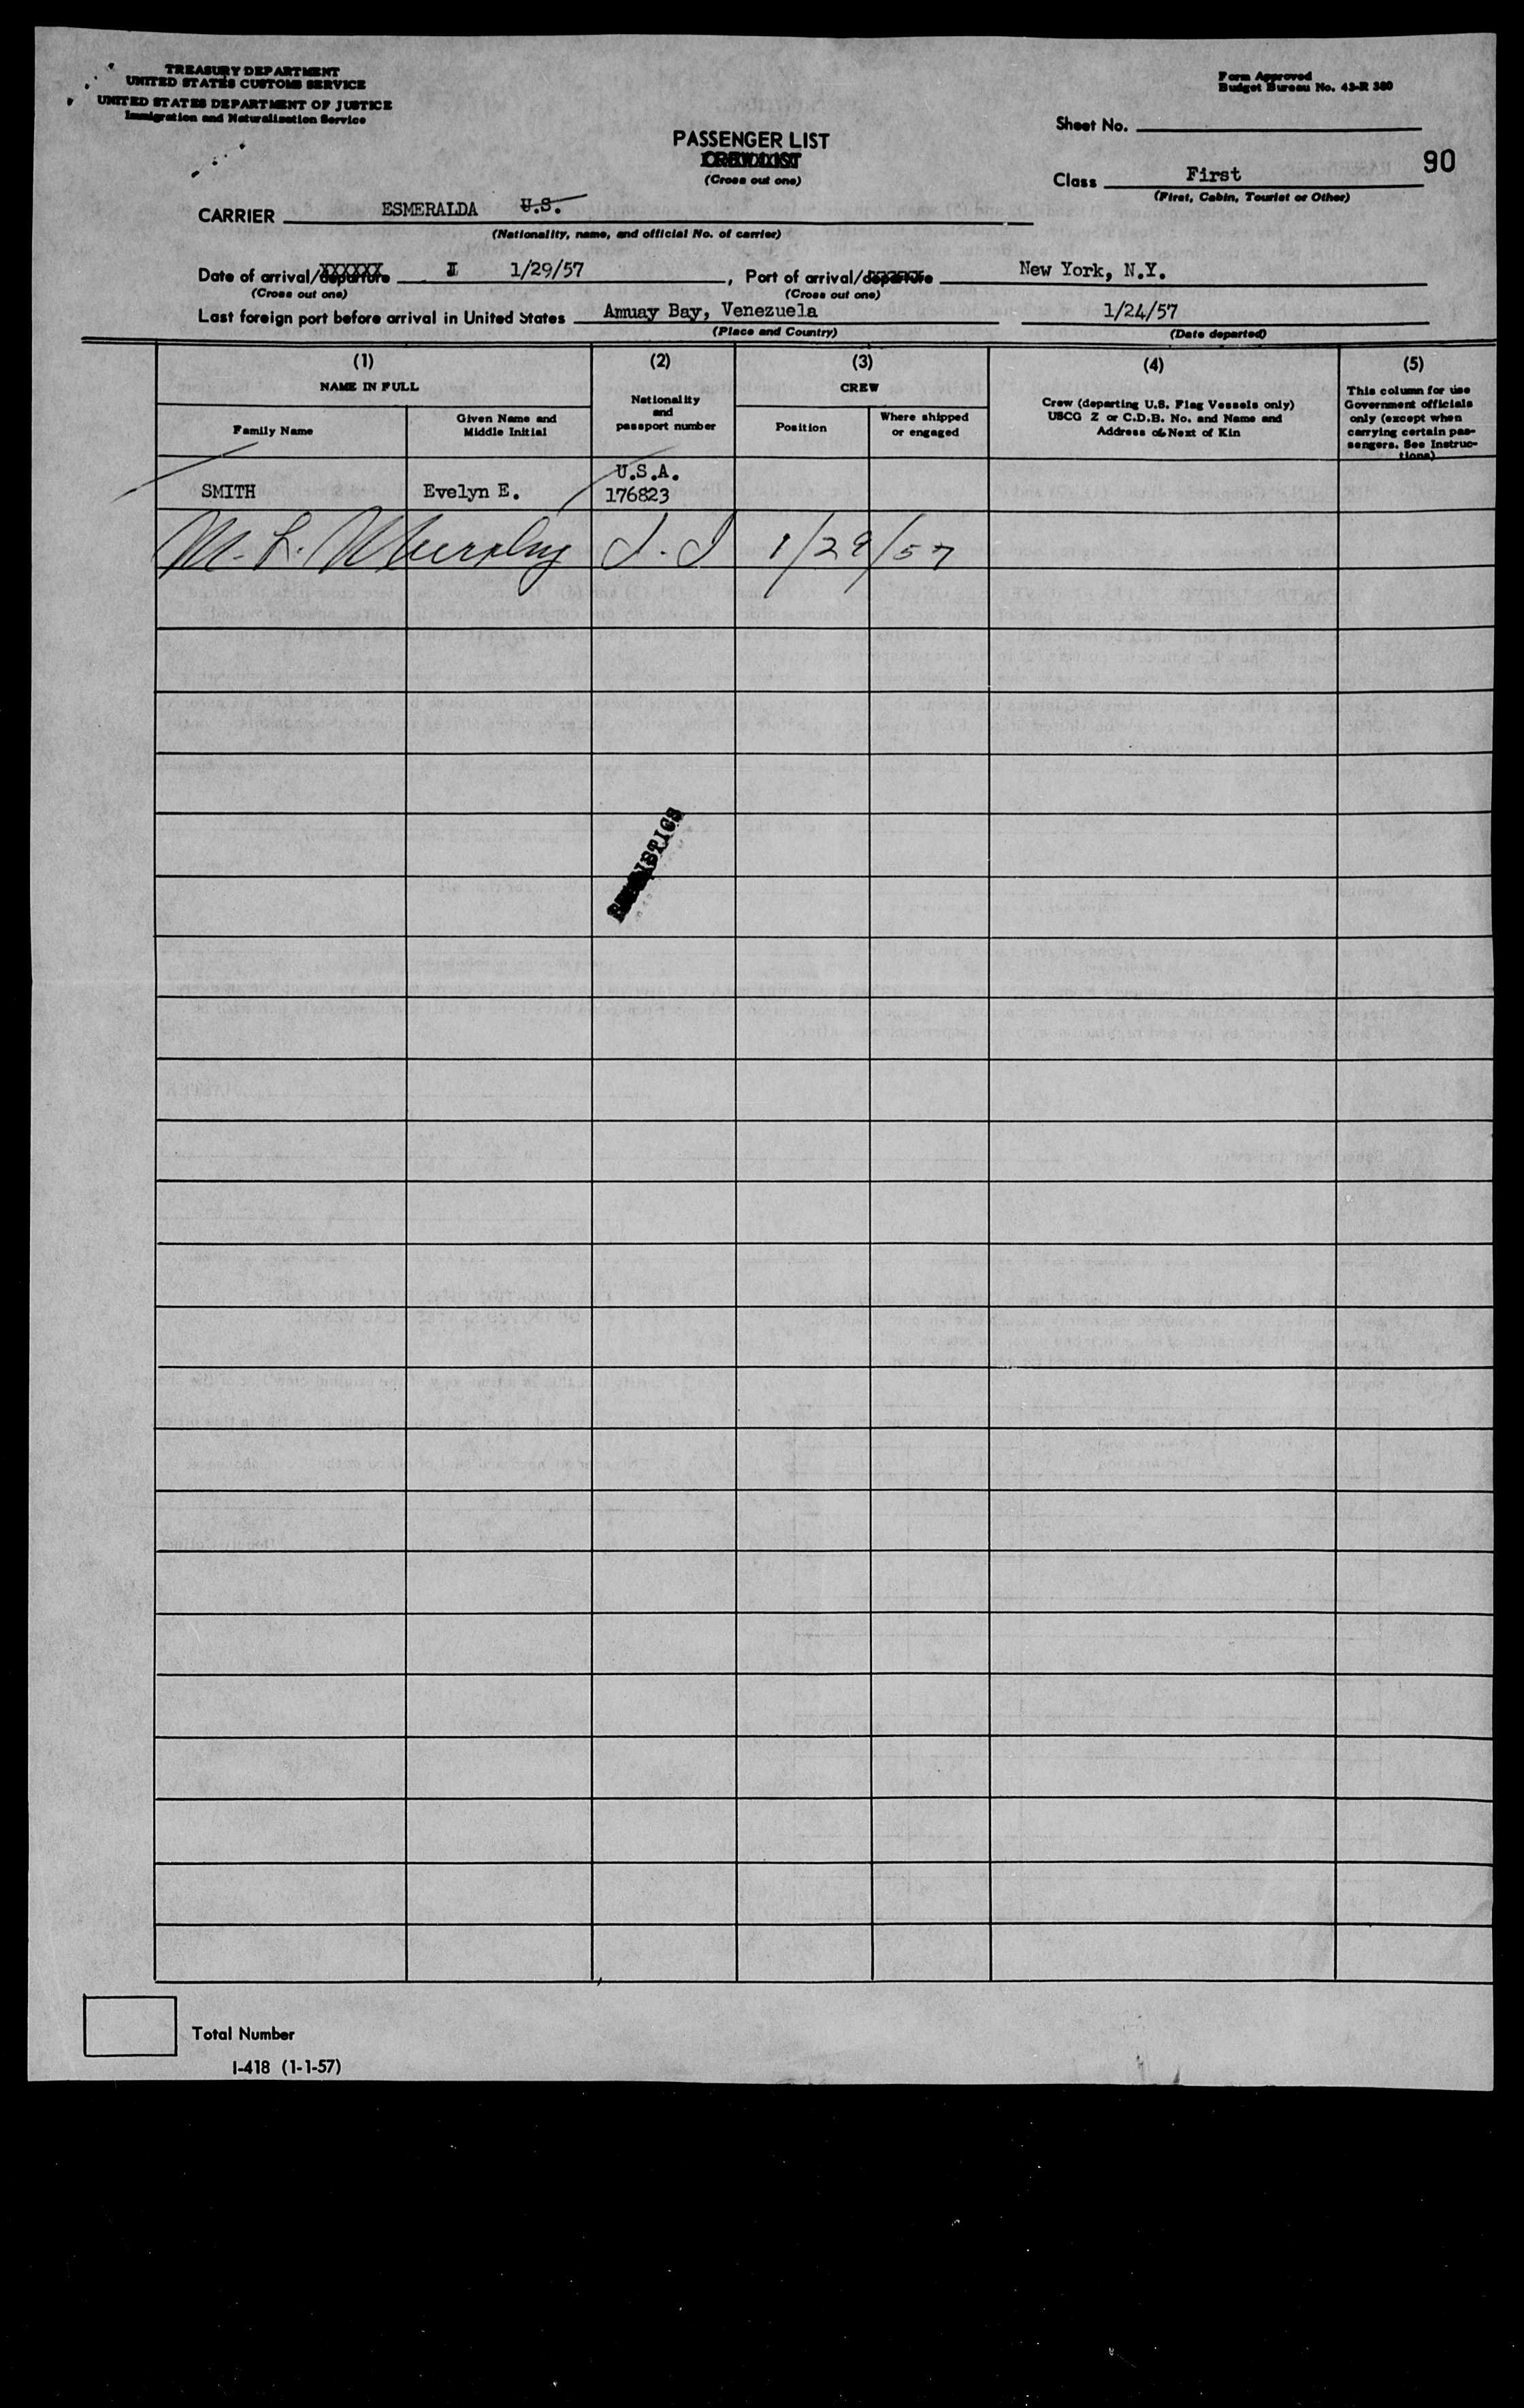 TREASURY DEPARTMENT
UNITED STATES CUSTOMS SERVICE
UNITED STATES DEPARTMENT OF JUSTICE
Immigration and Naturalization Service
Form Approved
Budget Bureau No. 43-R 380
Sheet No.
PASSENGER LIST
CREW LIST
(Cross out one)
90
Class First
(First, Cabin, Tourist or Other)
CARRIER ESMERALDA U.S.
(Nationality, name, and official No. of carrier)
Date of arrival/departure 1/29/57, Port of arrival/departure New York, N.Y.
(Cross out one) (Cross out one)
Last foreign port before arrival in United States Amuay Bay, Venezuela 1/24/57
(Place and Country) (Date departed)
(1) (2) (3) (4) (5)
NAME IN FULL
Family Name
Given Name and
Middle Initial
Nationality
and
passport number
CREW
Position
Where shipped
or engaged
Crew (departing U.S. Flag Vessels only)
USCG Z or C.D.B. No. and Name and
Address of Next of Kin
This column for use
Government officials
only (except when
carrying certain pas-
sengers. See Instruc-
tions)
U.S.A.
SMITH Evelyn E. 176823
M. L. Murphy 1/29/57
Total Number
I-418 (1-1-57)